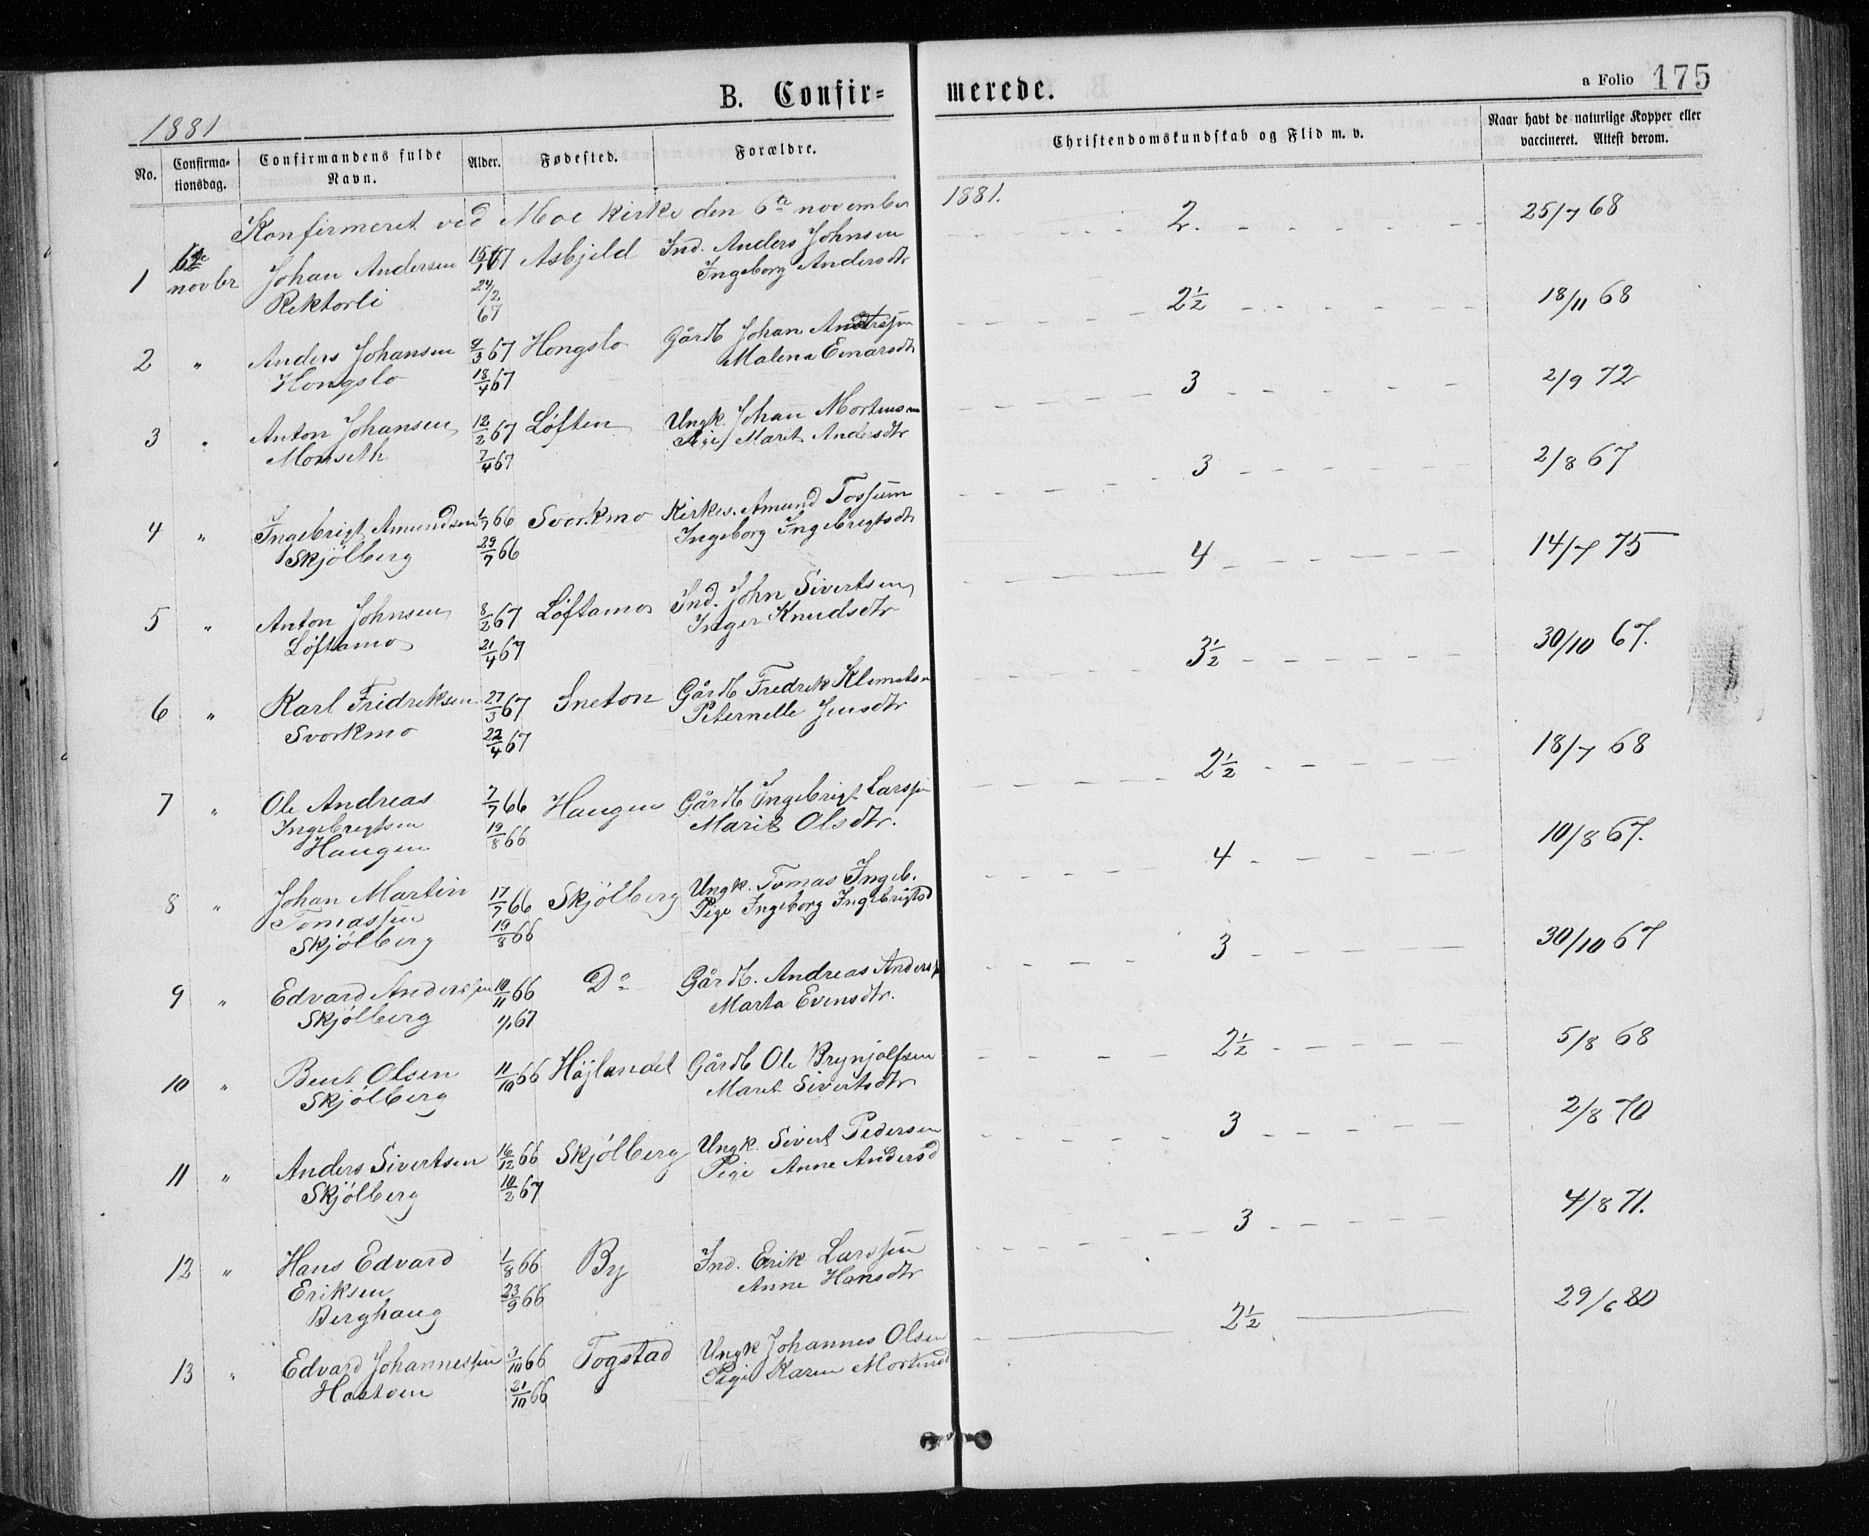 B. Confir=
merede.
a Folio 175
1881
No.
Confirma-
tionsdag.
Confirmandens fulde
Navn.
Alder.
Fødested.
Forældre.
Christendomskundskab og Flid m. v.
Naar havt de naturlige Kopper eller
vaccineret. Attest derom.
Konfirmeret ved Moe kirke den 6te november
1881.
1 6te novbr Johan Andersen 67 Asbjeld Ind. Anders Johnsen 2. 25/7 68
Rektorli 24/2 67 Ingeborg Andersdtr
2 " Anders Johansen 9/3 67 Hongslo Gårdb Johan Anderssen 2½ 18/11 68
Hongslo 18/4 67 Malena Einarsdtr
3 " Anton Johansen 12/2 67 Løften Ungk. Johan Mortensen 3 2/9 72
Monseth 7/4 67 Pige Marit Andersdtr
4 " Ingebrigt Amundsen 1/7 66 Svorkmo Kirkes. Amund Tossum 3 2/8 67
Skjølberg 29/7 66 Ingeborg Ingebrigtsdtr
5 " Anton Johnsen 8/2 67 Løftamo Ind. John Sivertsen 4 14/7 75
Løftamo 21/4 67 Inger Knudsdtr
6 " Karl Fridriksen 27/3 67 Sneton Gårdb Fredrik Klemetsen 3½ 30/10 67.
Svorkmo 22/4 67 Peternelle Jensdtr
7 " Ole Andreas 7/7 66 Haugen Gårdb Ingebrigt Larssen 2½ 18/7 68
Ingebrigtsen 19/8 66 Marit Olsdtr.
Haugen
8 " Johan Martin 17/7 66 Skjølberg Ungk. Tomas Ingeb. 4 10/8 67.
Tomassen 19/8 66 Pige Ingeborg Ingebrigtsd
Skjølberg
9 " Edvard Anderssen 10/11 66 Do Gårdb. Andreas Anderss 3 30/10 67
Skjølberg 1/1 67 Marta Evensdtr.
10 " Bent Olsen 11/10 66 Højlandet Gårdb Ole Brynjolfsen 2½ 5/8 68
Skjølberg Marit Sivertsdtr
11 " Anders Sivertsen 16/12 66 Skjølberg Ungk. Sivert Pedersen 3 2/8 70
Skjølberg 10/2 67 Pige Anne Andersd
12 " Hans Edvard 1/8 66 By Ind. Erik Larssen 3 4/8 71.
Eriksen 23/9 66 Anne Hansdtr
Berghaug
13 " Edvard Johannessen 3/10 66 Togstad Ungk Johannes Olsen 2½ 29/6 80
21/10 66 Pige Karen Mortensd